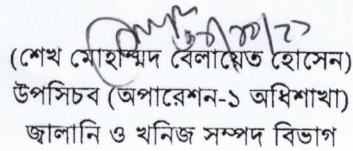 (শেখ মোহাম্মদ বেলায়েত হোসেন)
উপসিচব (অপারেশন-১ অধিশাখা)
জ্বালানি ও খনিজ সম্পদ বিভাগ